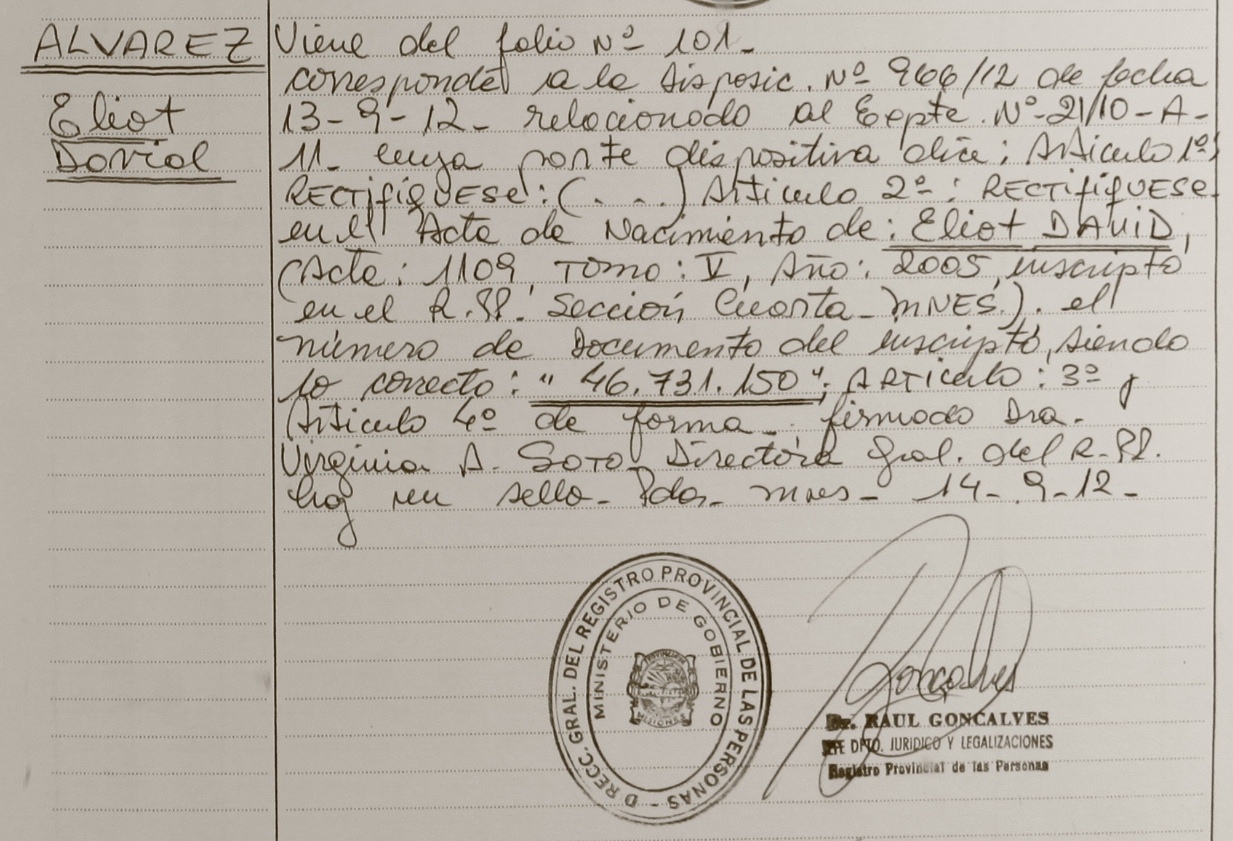 ALVAREZ
Eliot
David
Viene del folio Nº 101-
corresponde a la Disposic. Nº 966/12 de fecha
13-9-12- relacionado al Expte. Nº-21/10-A-
11- cuya parte dispositiva dice: Articulo 1º)
RECTIFIQUESE: (. . .) Articulo 2º: RECTIFIQUESE
en el Acta de Nacimiento de: Eliot DAVID,
(Acta: 1109, TOMO: V, Año: 2005, inscripto
en el R.PP. Sección Cuarta- MNES.). el
número de Documento del inscripto, siendo
lo correcto: "46.731.150"; ARTICULO: 3º y
Articulo 4º de forma- firmado Dra.
Virginia A. SOTO Directora Gral. del R-PP.
hay un sello- Pdas- mnes- 14-9-12-
DIRECC. GRAL. DEL REGISTRO PROVINCIAL DE LAS PERSONAS -
MINISTERIO DE GOBIERNO
MISIONES
Goncalves
Dr. RAUL GONCALVES
JEFE DPTO. JURIDICO Y LEGALIZACIONES
Registro Provincial de las Personas